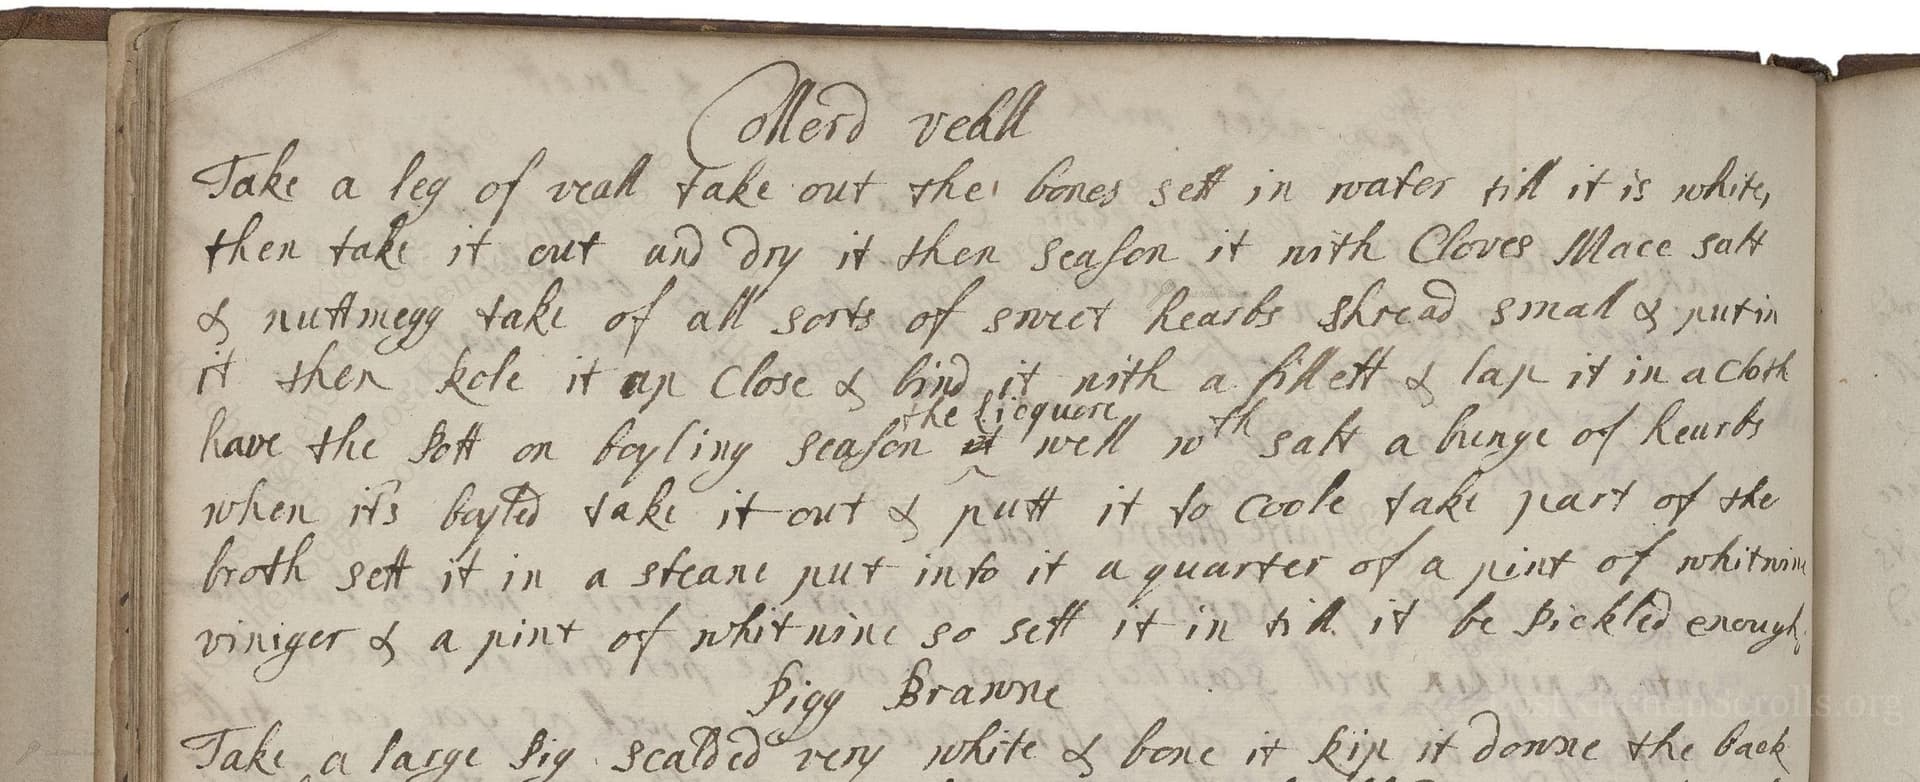 Collerd veall
Take a leg of veall take out the bones sett in water till it is white,
then take it out and dry it then season it with Cloves Mace salt
& nuttmegg take of all sorts of sweet hearbs shread small & put in
it then role it up Close & bind it with a fillett & lap it in a cloth
the licquore
have the Pott on boyling season it well wth salt a bunge of hearbs
when it's boyled take it out & putt it to coole take part of the
broth sett it in a steane put into it a quarter of a pint of whitwine
viniger & a pint of whitwine so sett it in till it be Pickled enough
Pigg Brawne
Take a large Pig scalded very white & bone it Rip it downe the back